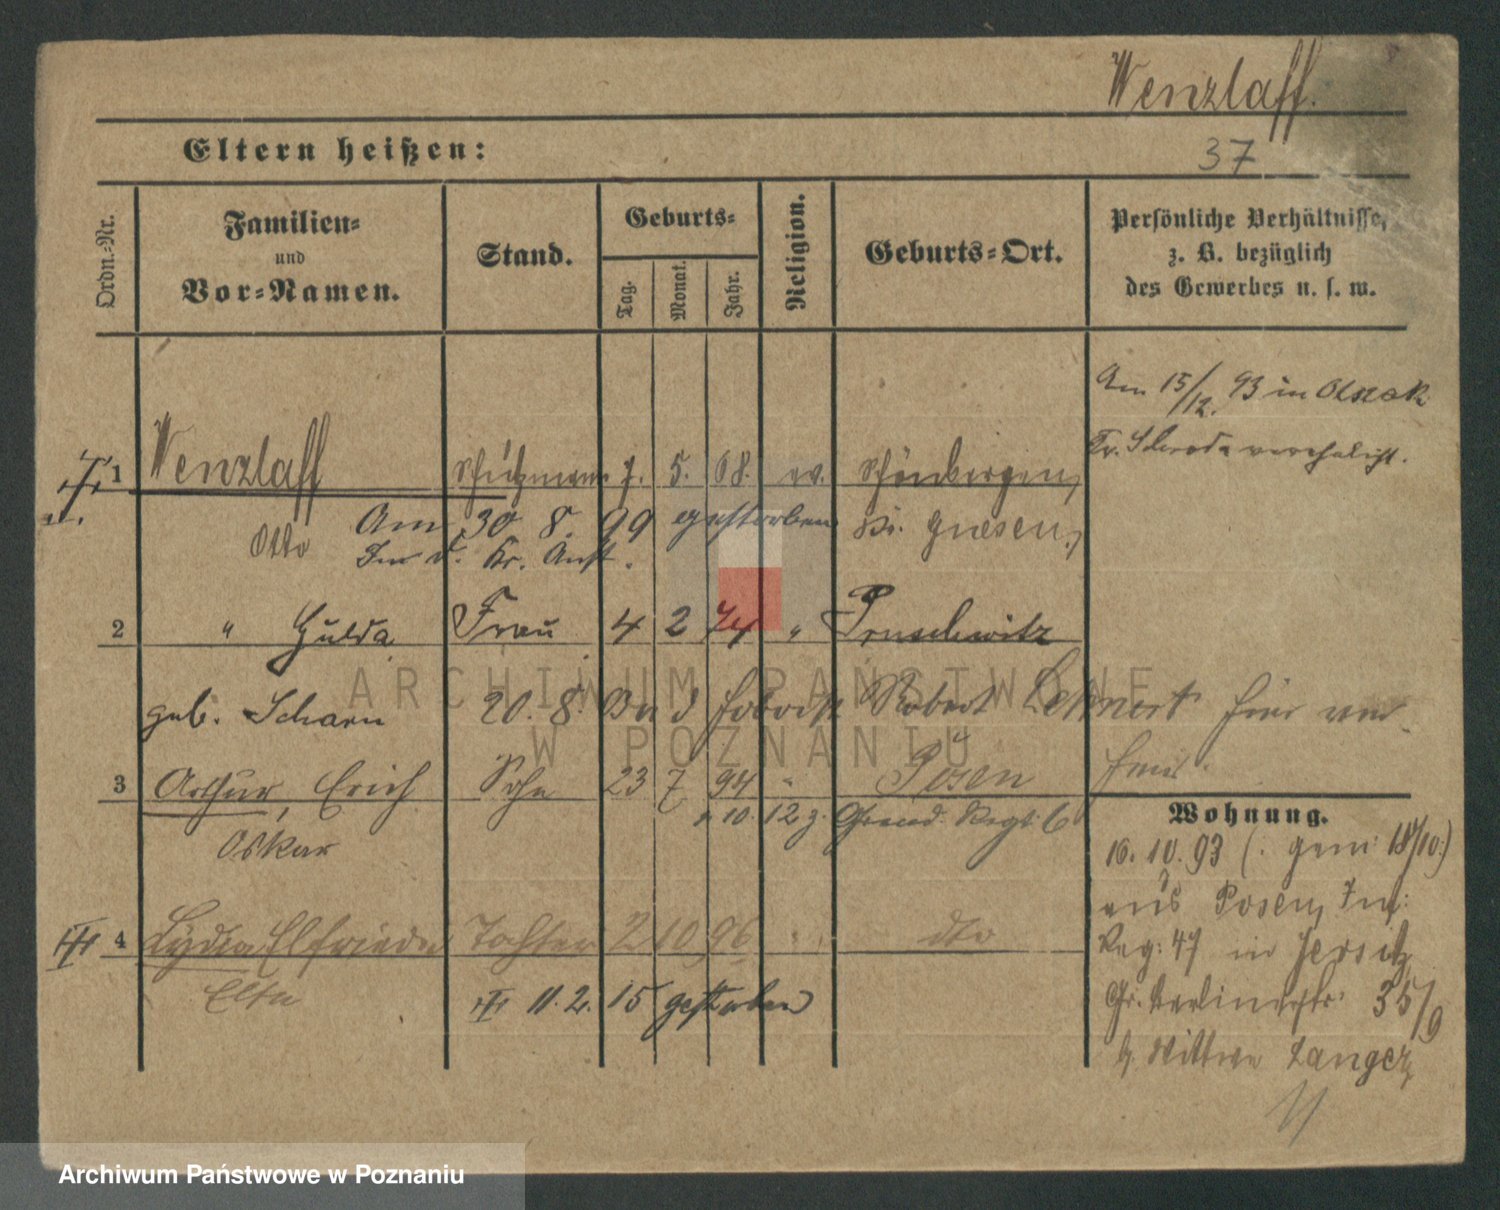 Wenzlaff.
Eltern heißen:
37
Ordn.-Nr.
Familien-
und
Vor-Namen.
Stand.
Geburts-
Tag.
Monat.
Jahr.
Religion.
Geburts-Ort.
Persönliche Verhältnisse,
z. B. bezüglich
des Gewerbes u. s. w.
Am 15/12. 93 in
Kr. Schroda verehelicht.
1 Wenzlaff Schutzmann 7. 5. 68. ev. Schönbergen,
Otto Am 30 8. 99 gestorben Kr. Gnesen,
In d. Kr. Anst.
2 " Hulda Frau 4 2 74 " Pruschwitz
geb. Scharn 20. 8. Robert
3 Arthur, Erich Sohn 23 7 94 " Posen
10. 12 z. Grend. Regt. 6
Oskar
Wohnung.
16. 10. 93 (. gem: 18/10:)
aus Posen, Inf:
Reg: 47 in Jersitz
Gr. Berlinerstr. 35/9
b. Wittwe Langer
III 4 Lydia Elfriede Tochter 2 10 96 " dto
Elsa
III 11. 2. 15 gestorben
ARCHIWUM PAŃSTWOWE
W POZNANIU
Archiwum Państwowe w Poznaniu